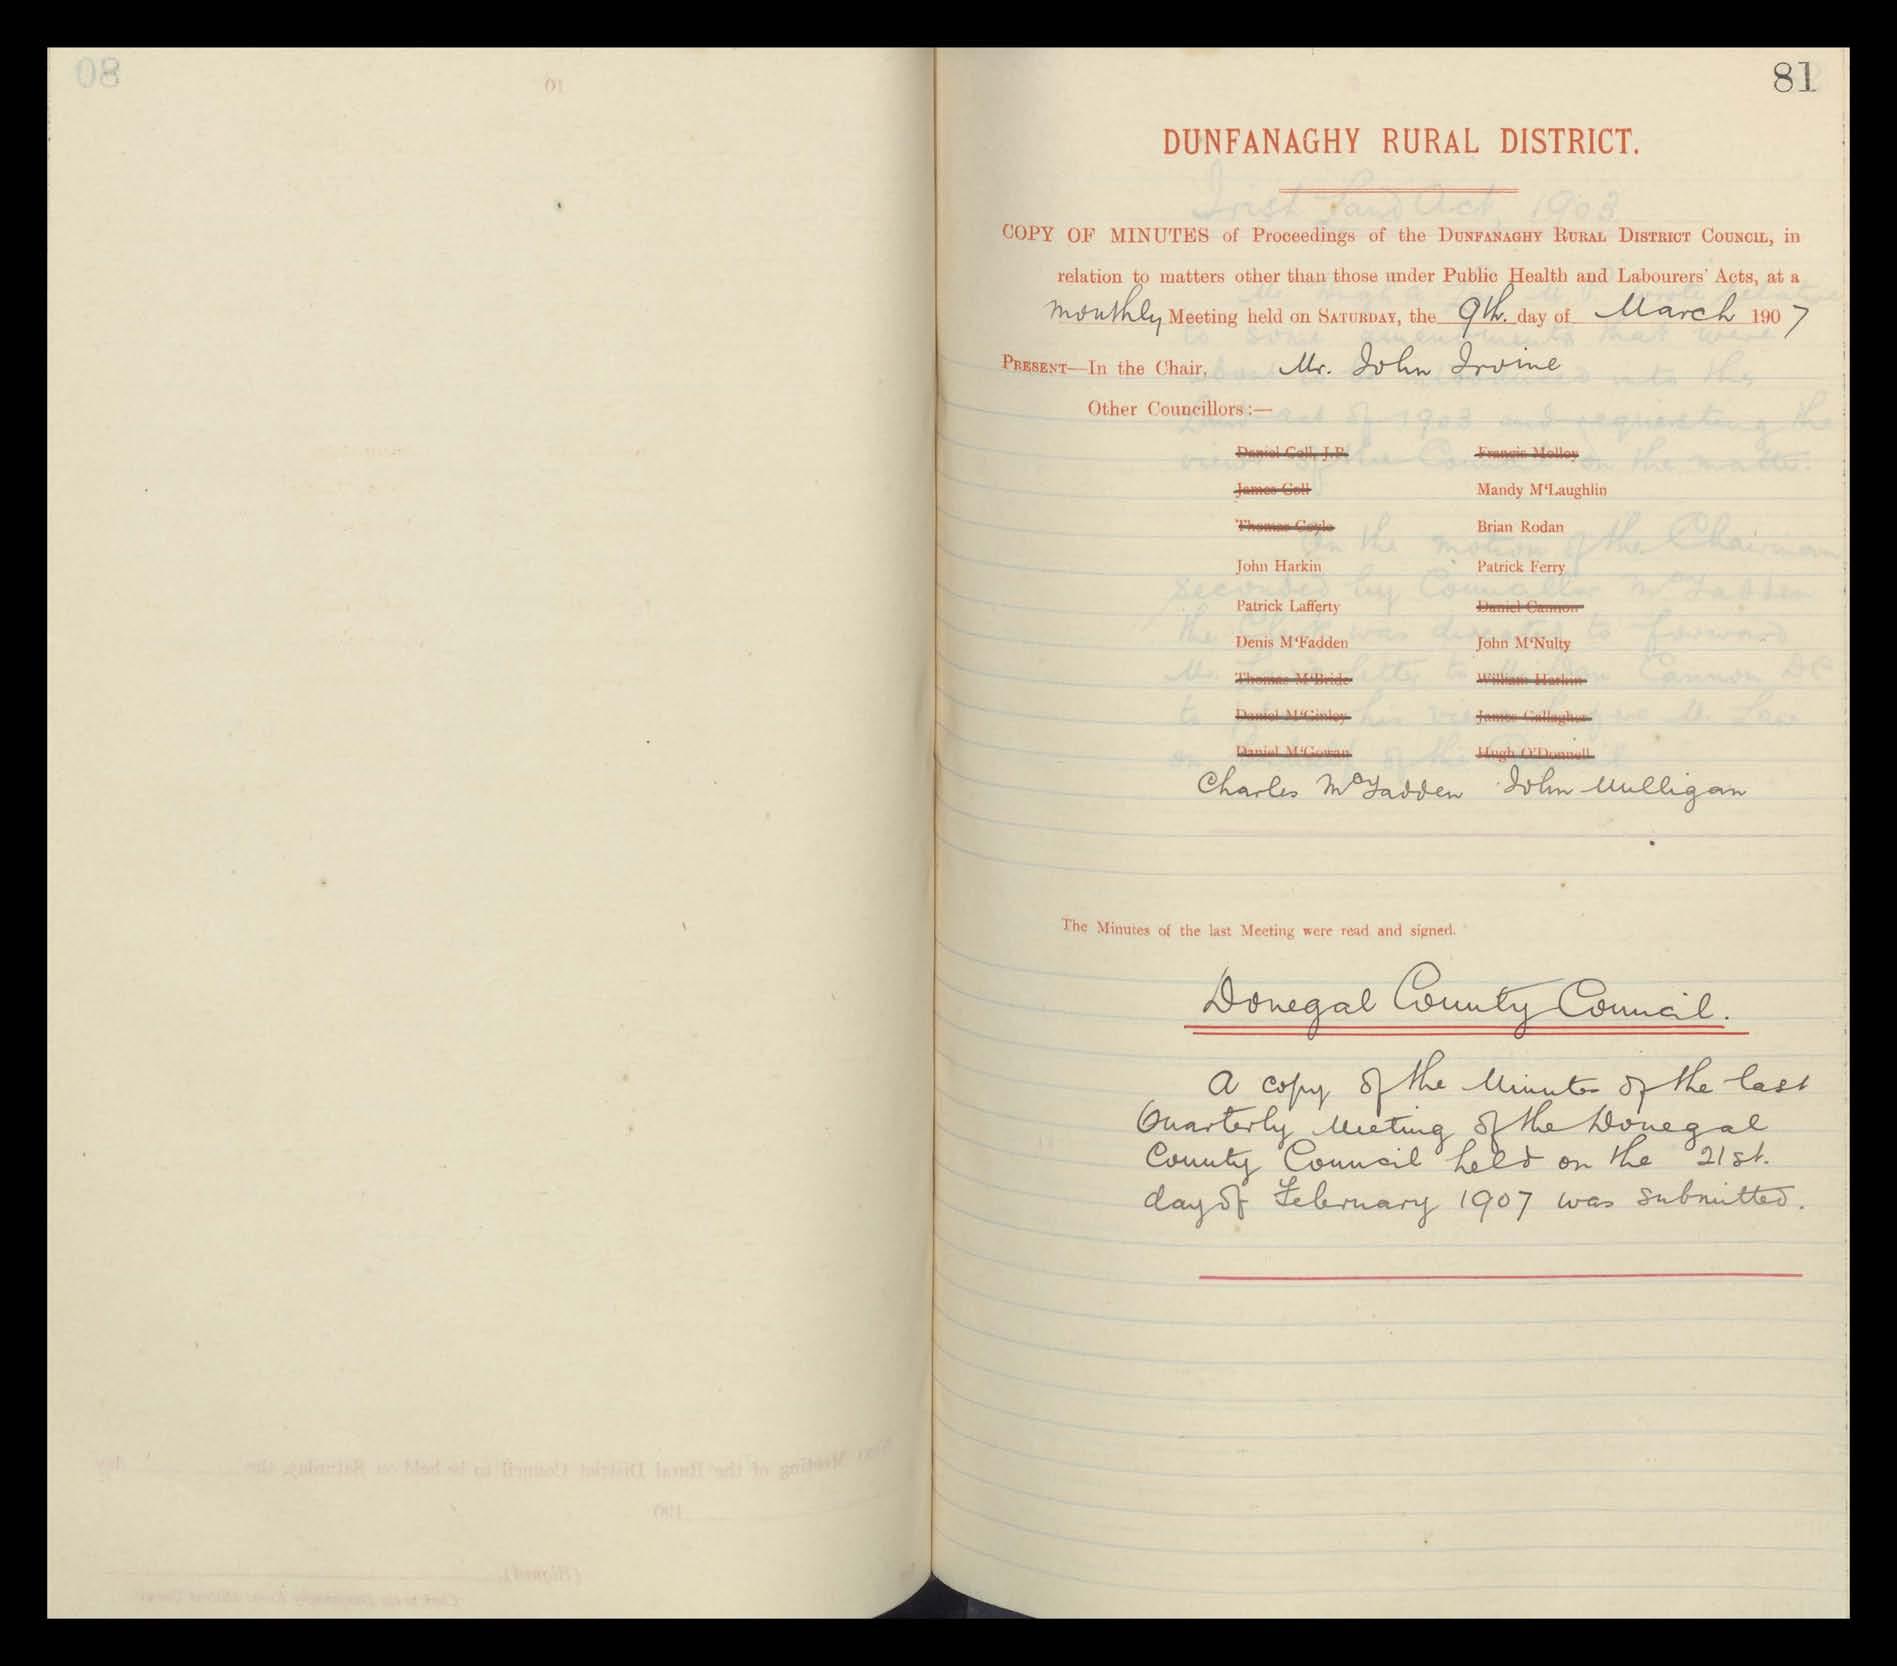 81
DUNFANAGHY RURAL DISTRICT.
COPY OF MINUTES of Proceedings of the DUNFANAGHY RURAL DISTRICT COUNCIL, in
relation to matters other than those under Public Health and Labourers' Acts, at a
monthly Meeting held on SATURDAY, the 9th. day of March 1907
PRESENT—In the Chair, Mr. John Irvine
Other Councillors:—
Daniel Coll, J.P. Francis Molloy
James Coll Mandy M'Laughlin
Thomas Coyle Brian Rodan
John Harkin Patrick Ferry
Patrick Lafferty Daniel Cannon
Denis M'Fadden John M'Nulty
Thomas M'Bride William Harkin
Daniel M'Ginley James Gallagher
Daniel M'Gowan Hugh O'Donnell
Charles McFadden John Mulligan
The Minutes of the last Meeting were read and signed.
Donegal County Council.
A copy of the Minutes of the last
Quarterly Meeting of the Donegal
County Council held on the 21st.
day of February 1907 was submitted.